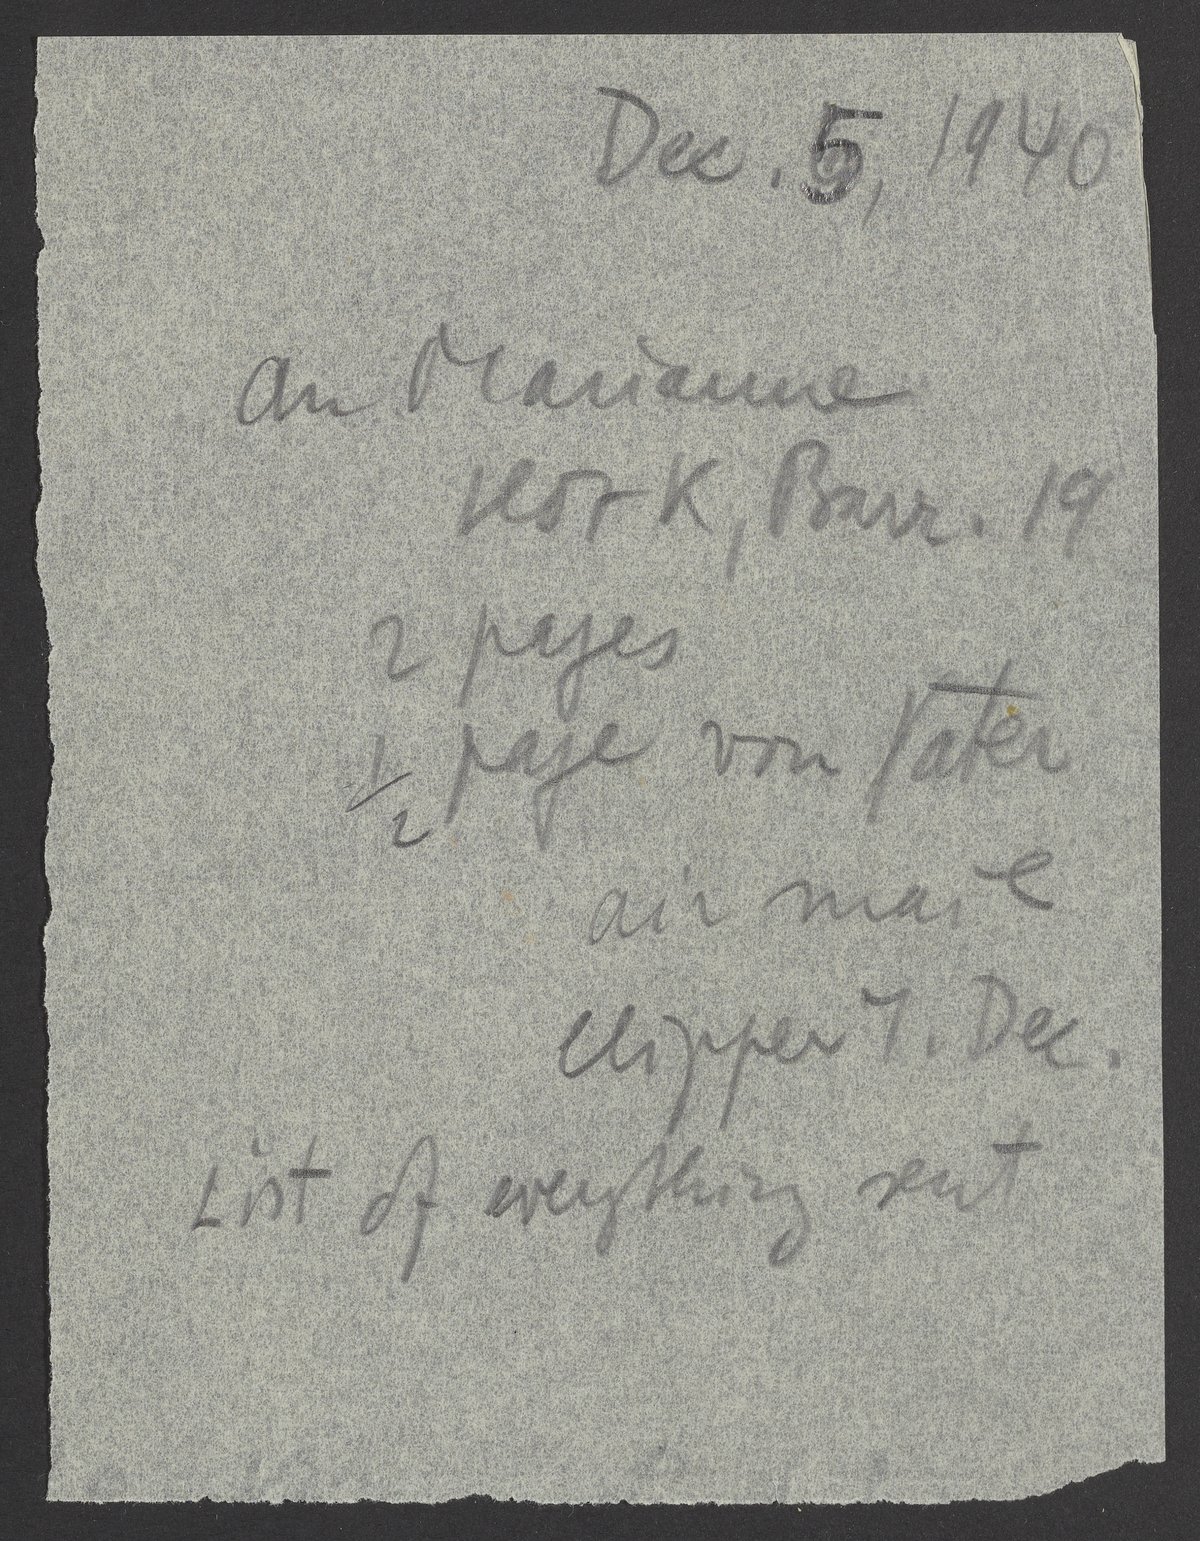 Dec. 5, 1940
an Marianne
Ilot K, Barr. 19
2 pages
1/2 page von Vater
air mail
clipper 7. Dec.
List of everything sent